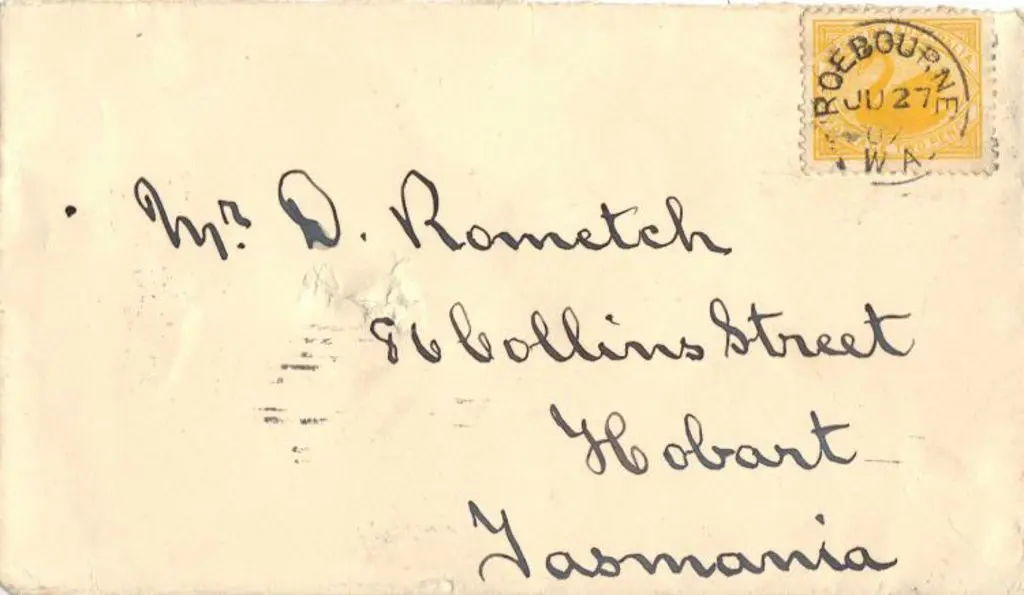 ROEBOURNE
JU 27
07
W.A.
Mr. D. Rometch
86 Collins Street
Hobart
Tasmania